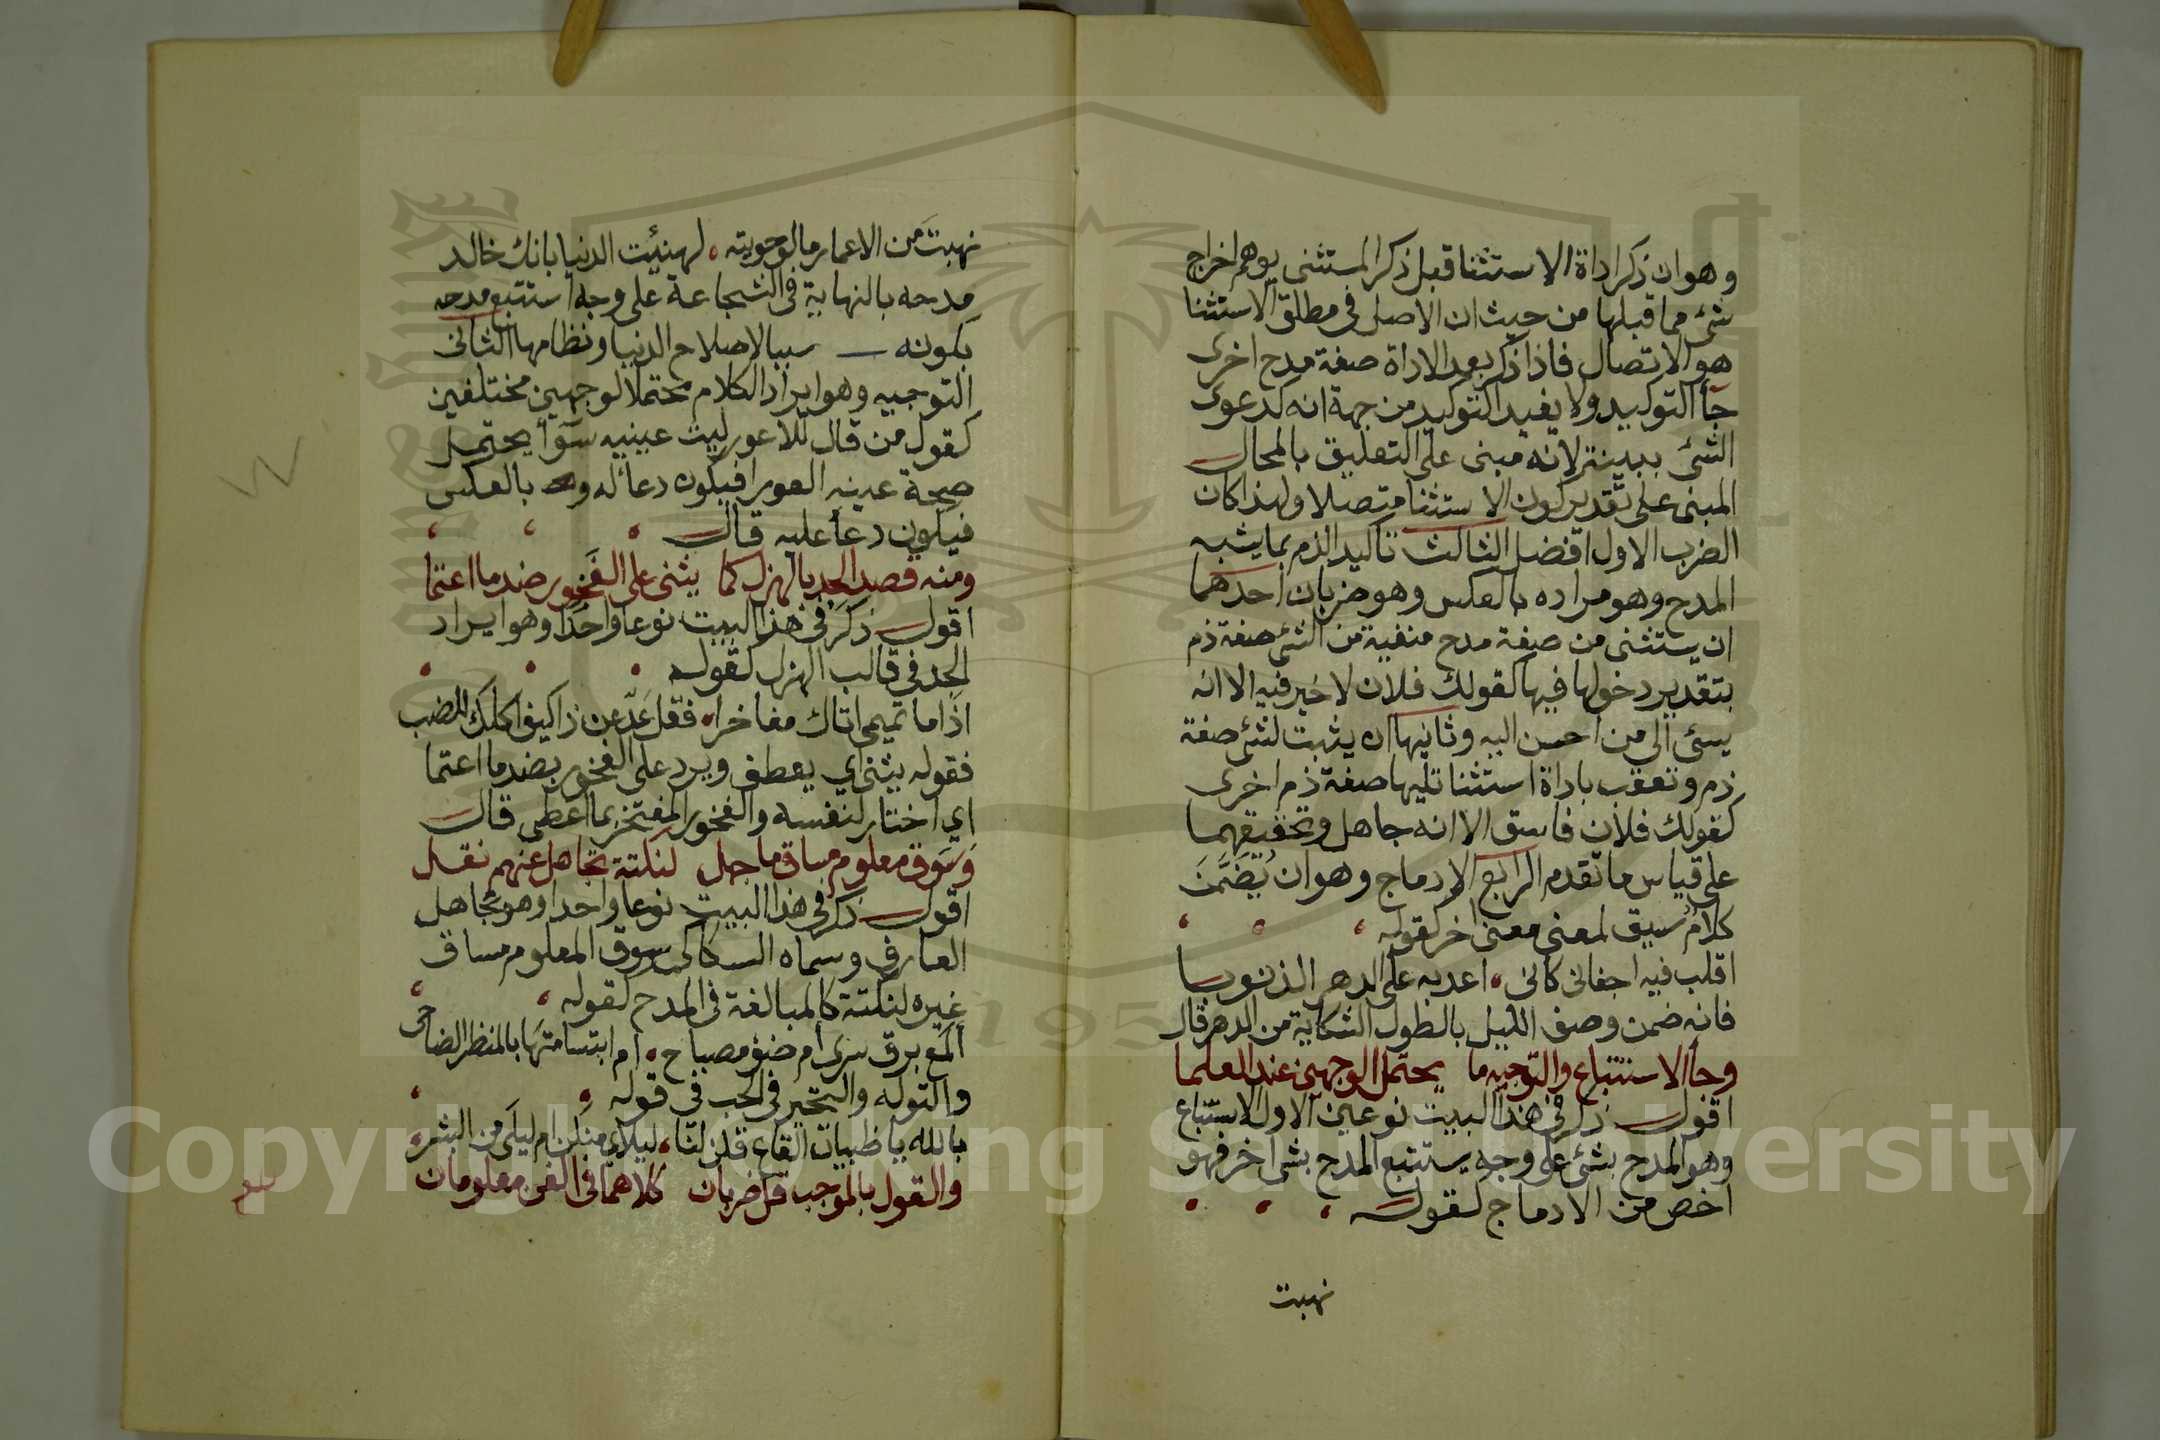 وهو ان ذكر اداة الاستثنا قبل ذكر المستثنى يوهم اخراج
شئ مما قبلها من حيث ان الاصل فى مطلق الاستثنا
هو الاتصال فاذا ذكر بعد الاداة صفة مدح اخرى
جأ التوكيد ولا يفيد التوكيد من جهة انه كدعوى
الشئ ببينة لانه مبنى على التعليق بالمحال
المبنى على تقدير كون الاستثنا متصلا ولهذا كان
الضرب الاول افضل الثالث تاكيد الذم بما يشبه
المدح وهو مراده بالعكس وهو ضربان احدهما
ان يستثنى من صفة مدح منفية من الشئ صفة ذم
بتقدير دخولها فيها كقولك فلان لا خير فيه الا انه
يسئ الى من احسن اليه وثانيها ان يثبت لشئ صفة
ذم وتعقب باداة استثنا تليها صفة ذم اخرى
كقولك فلان فاسق الا انه جاهل وتحقيقهما
على قياس ما تقدم الرابع الادماج وهو ان يُضَمَّنَ
كلامٌ سيق لمعنى معنى اخر كقوله
اقلب فيه اجفانى كانى ، اعد به على الدهر الذنوبا
فانه ضمن وصف الليل بالطول الشكاية من الدهر قال
وجأ الاستتباع والتوجيه ما يحتمل الوجهين عند العلما
اقول ذكر فى هذا البيت نوعين الاول الاستتباع
وهو المدح بشئ على وجه يستتبع المدح بشئ اخر فهو
اخص من الادماج كقوله
نهبت
نهبت من الاعمار ما لو حويته ، لهنيئت الدنيا بانك خالد
مدحه بالنهاية فى الشجاعة على وجه استتبع مدحه
بكونه سببا لاصلاح الدنيا ونظامها الثانى
التوجيه وهو ايراد الكلام محتملا لوجهين مختلفين
كقول من قال للاعور ليت عينيه سوأ يحتمل
صحة عينه العورا فيكون دعأ له و بالعكس
فيكون دعأ عليه قال
ومنه قصد الجد بالهزل كما يثنى على الفخور ضد ما اعتما
اقول ذكر فى هذا البيت نوعا واحدا وهو ايراد
الجد فى قالب الهزل كقوله
اذا ما تميمى اتاك مفاخرا ، فقل عَدِّ عن ذا كيف اكلك للضب
فقوله يثنى اي يعطف ويرد على الفخور بضد ما اعتما
اي اختار لنفسه والفخور المفتخر بما اعطى قال
وسوق معلوم مساق ما جهل لنكتة تجاهل عنهم نقل
اقول ذكر فى هذا البيت نوعا واحدا وهو تجاهل
العارف وسماه السكاكى سوق المعلوم مساق
غيره لنكتة كالمبالغة فى المدح كقوله
المع برق سرى ام ضؤ مصباح ، ام ابتسامتها بالمنظر الضاحى
والتوله والتحير فى الحب فى قوله
بالله يا ظبيات القاع قلن لنا ، ليلاي منكن ام ليلى من البشر
والقول بالموجب قل ضربان كلاهما فى الفن معلومان
Copyright © King Saud University